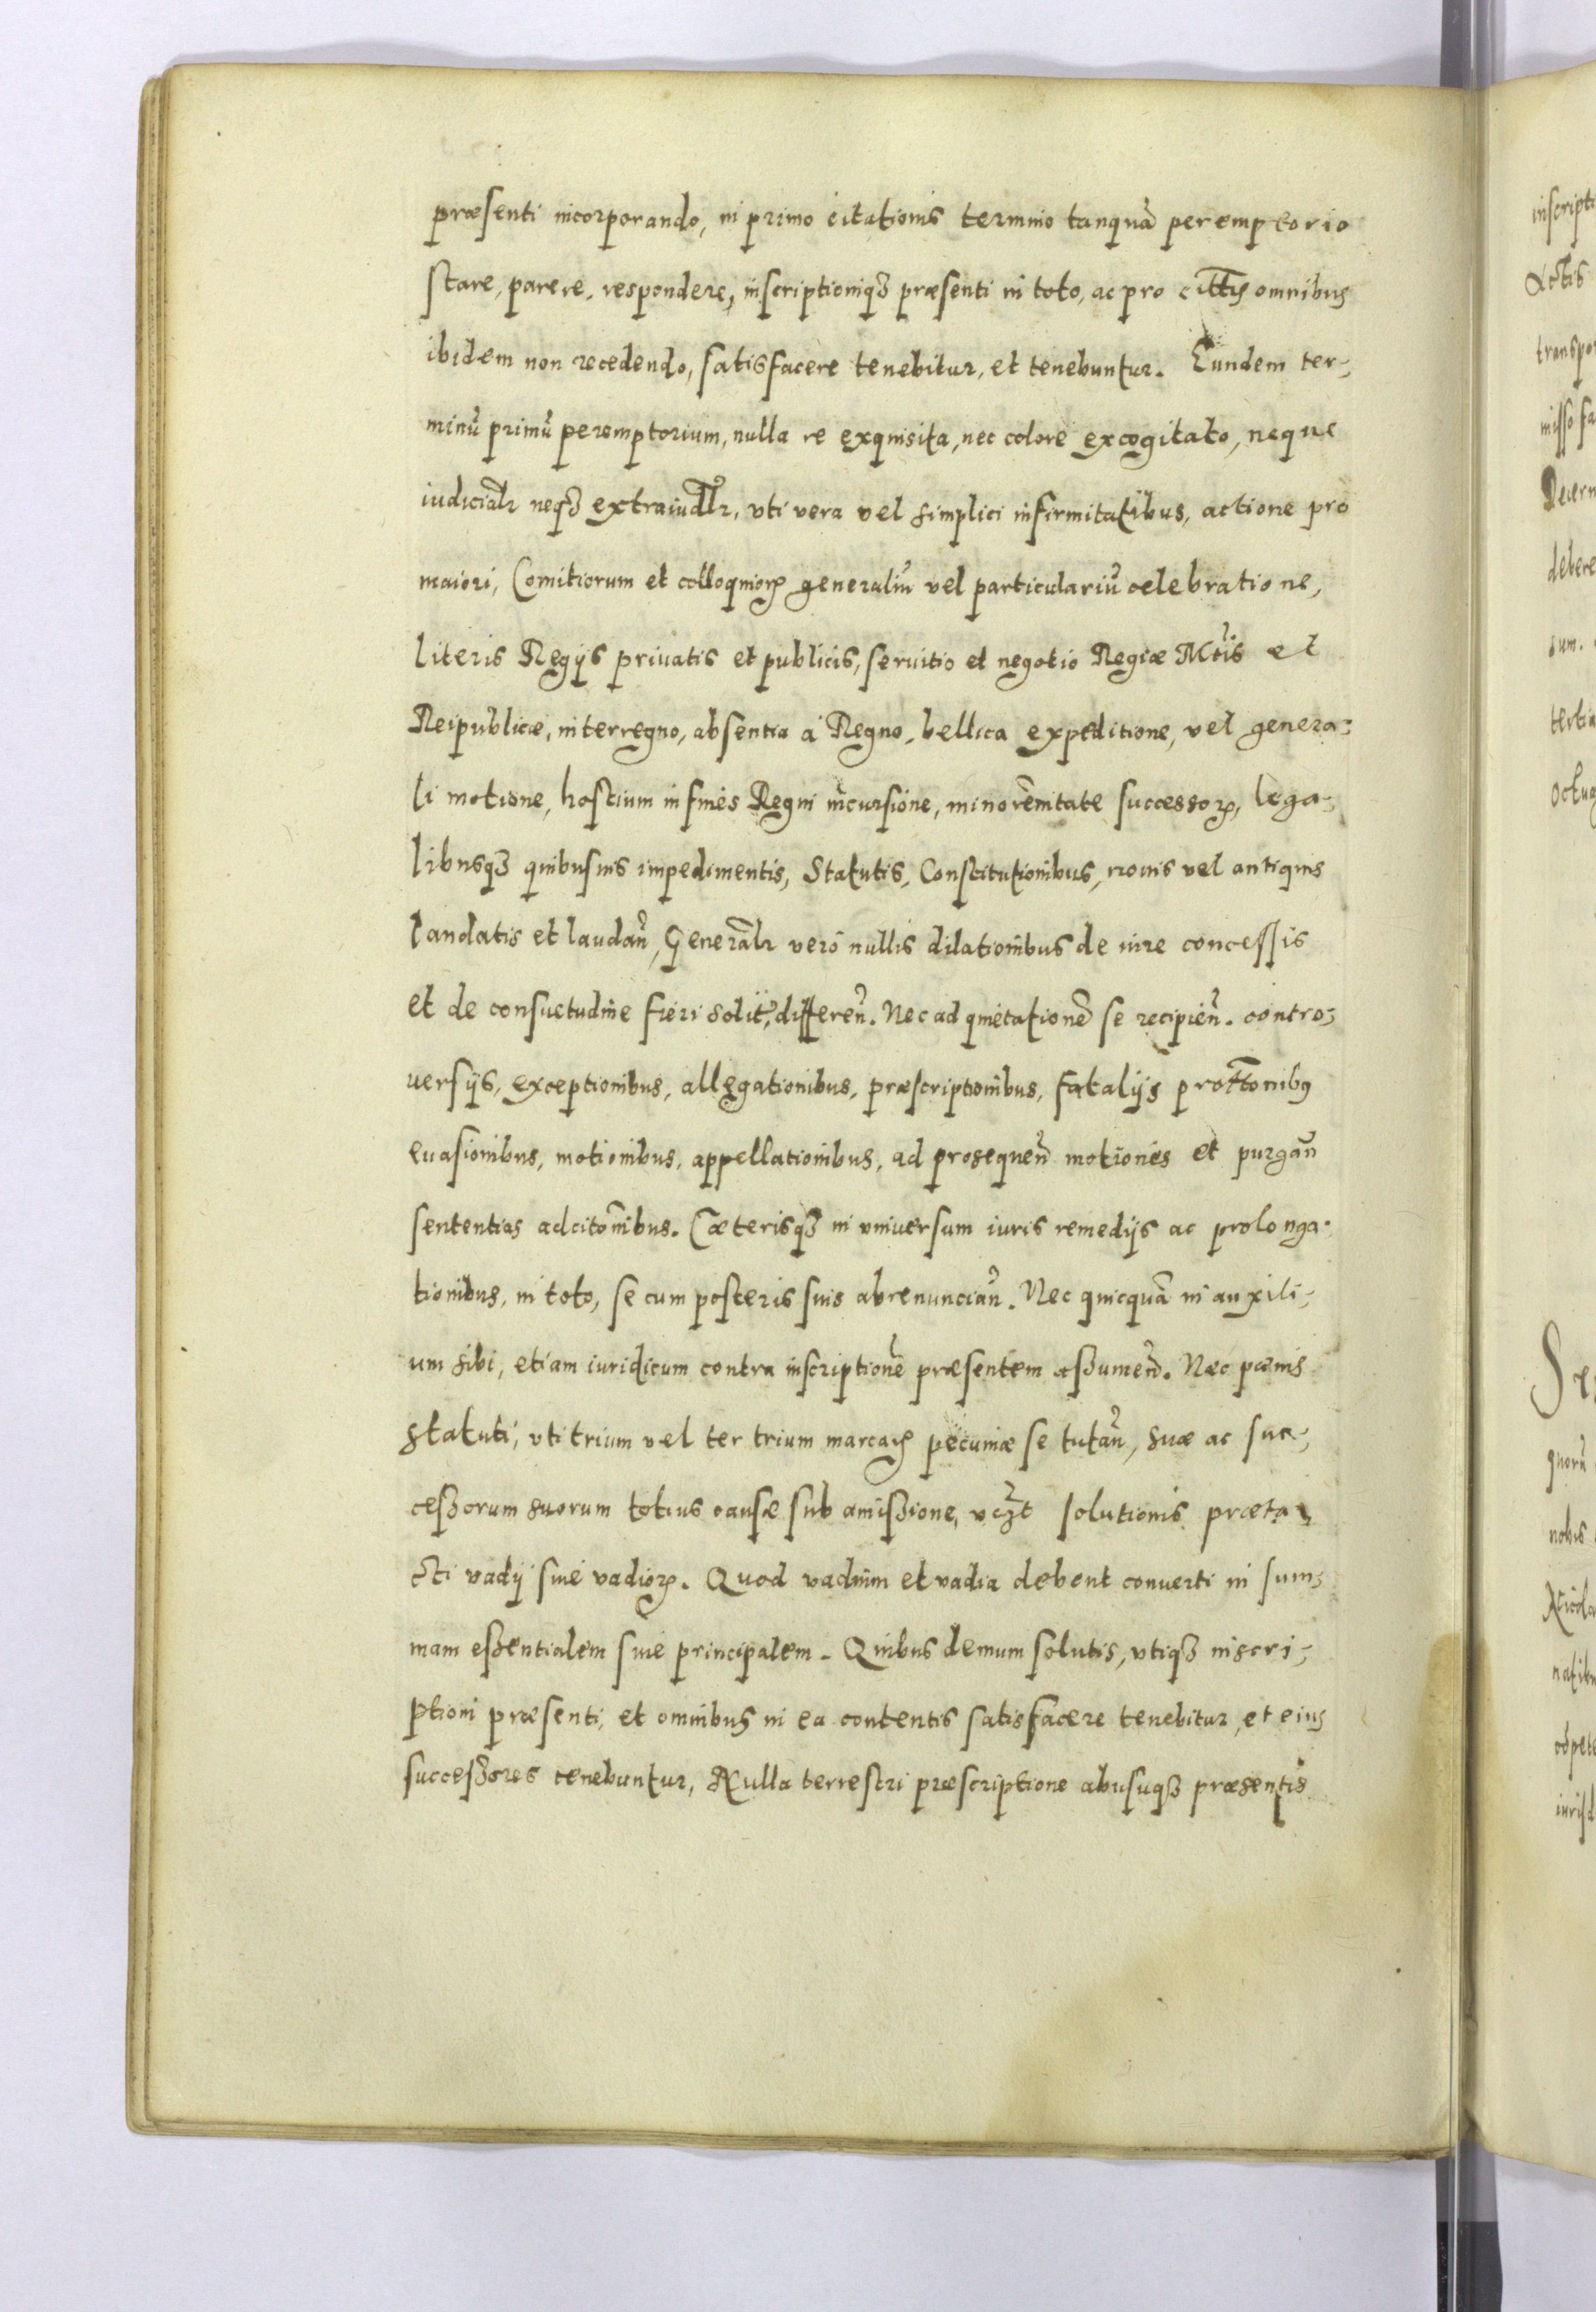 præsenti incorporando, in primo citationis termino tanquã peremptorio
stare, parere, respondere, inscriptioniqȝ præsenti in toto, ac pro cittis omnibus
ibidem non recedendo, satisfacere tenebitur, et tenebuntur. Eundem ter-
minũ primũ peremptorium, nulla re exquisita, nec colore excogitato, neque
iudicialr neqȝ extraiudlr, vti vera vel simplici infirmitatibus, actione pro
maiori, Comitiorum et colloquiorꝝ generaliũ vel particulariũ celebratione,
literis Regijs priuatis et publicis, seruitio et negotio Regiæ Mtis et
Reipublicæ, interregno, absentia à Regno, bellica expeditione, vel genera-
li motione, hostium in fines Regni incursione, minorennitate successorꝝ, lega-
libusqȝ quibusuis impedimentis, Statutis, Constitutionibus, nouis vel antiquis
laudatis et laudañ, Generalr verò nullis dilationibus de iure concessis
et de consuetudine fieri solit, differeñ. Nec ad quietationẽ se recipieñ. contro-
uersijs, exceptionibus, allegationibus, præscriptionibus, fatalijs prottonibꝰ
euasionibus, motionibus, appellationibus, ad prosequeñ motiones et purgañ
sententias adcitonibus. Cæterisqȝ in vniuersum iuris remedijs ac prolonga-
tionibus, in toto, se cum posteris suis abrenunciañ. Nec quicquã in auxili-
um sibi, etiam iuridicum contra inscriptionẽ præsentem assumeñ. Nec pœnis
statuti, vti trium vel ter trium marcarꝝ pecuniæ se tutañ, suæ ac suc-
cessorum suorum totius causæ sub amissione, vczt solutionis præta-
cti vadij siue vadiorꝝ. Quod vadium et vadia debent conuerti in sum-
mam essentialem siue principalem. Quibus demum solutis, vtiqȝ inscri-
ptioni præsenti, et omnibus in ea contentis satisfacere tenebitur, et eius
successores tenebuntur, Nulla terrestri præscriptione abusuqȝ præsentis